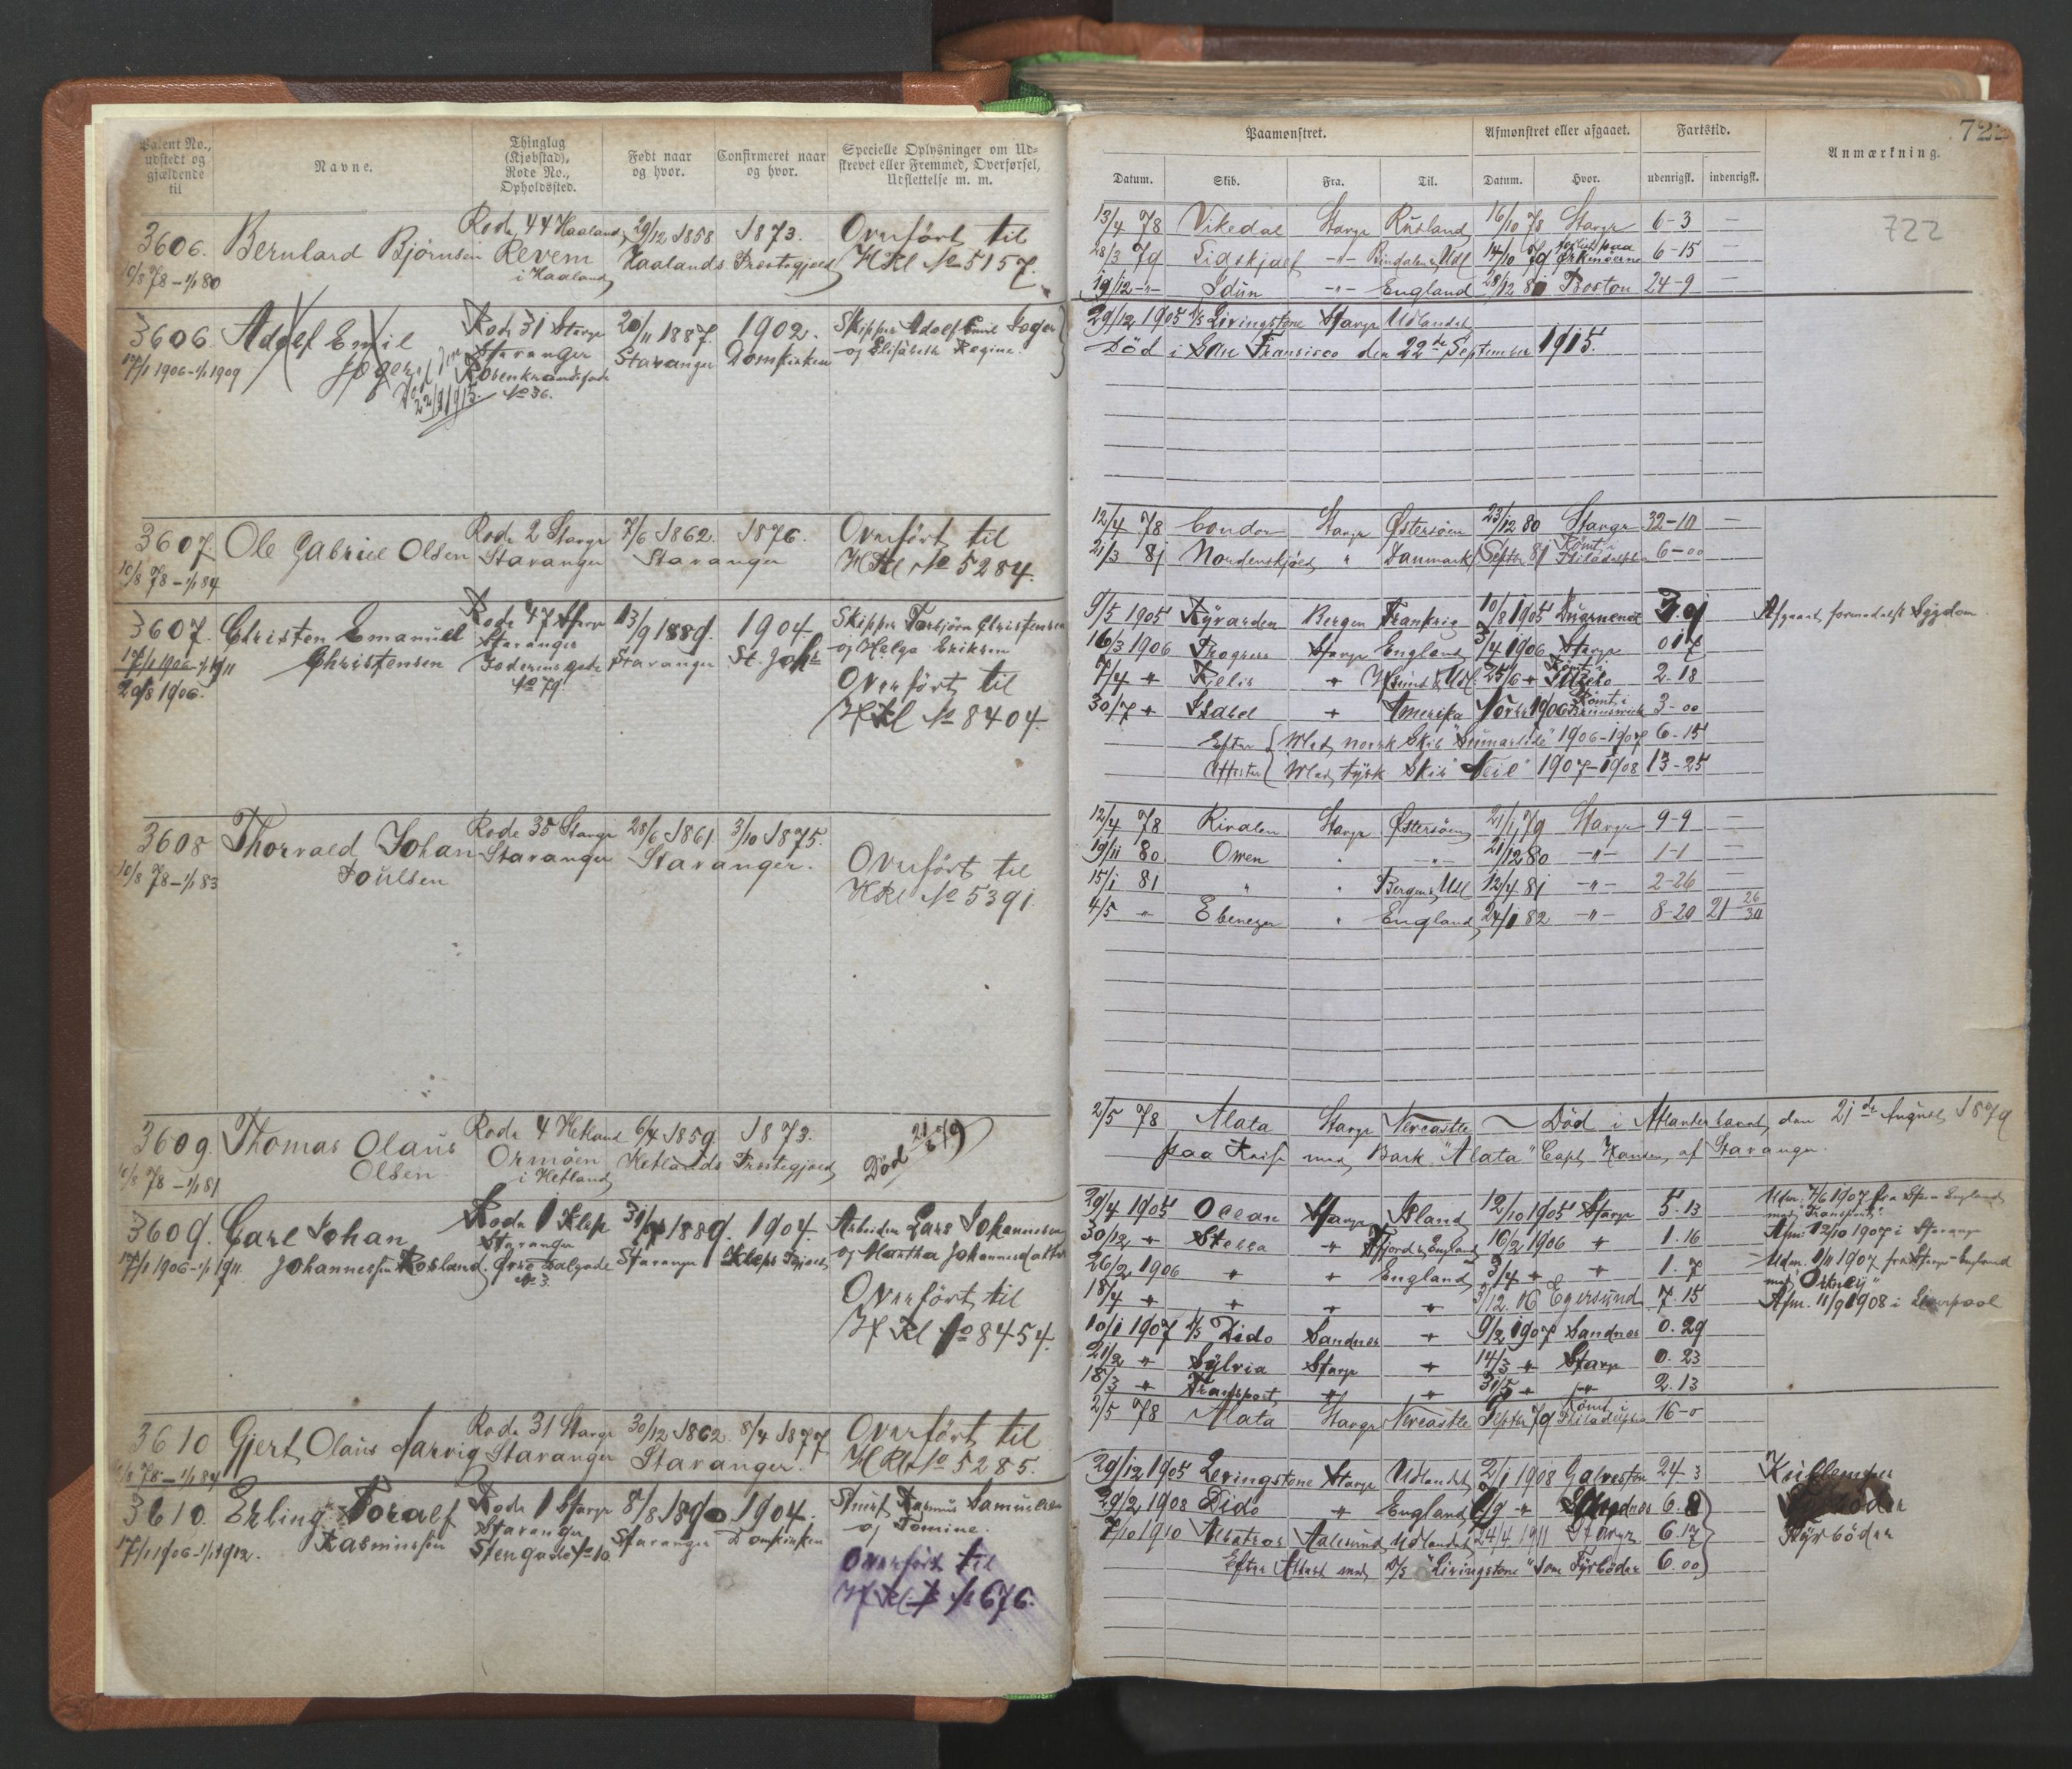 Patent No., udstedt og gjældende til
Navne.
Thinglag (Kjøbstad), Rode No., Opholdssted.
Født naar og hvor.
Confirmeret naar og hvor.
Specielle Oplysninger om Udskrevet eller Fremmed, Overførsel, Udslettelse m. m.
3606. Bernhard Bjørnsen Rode 44 Haaland 29/12 1858. 1873. Overført til
10/8 78 – 1/1 80 Revem i Haaland Haalands Præstegjeld HRl No 5157.
3606. Adolf Emil Rode 31 Stavgr 20/11 1887. 1902. Skipper Adolf Emil Jæger
17/1 1906 – 1/1 1909 Jæger Stavanger Stavanger Domkirken og Elisabeth Regine.
Død 22/9 1915. No 36.
3607. Ole Gabriel Olsen Rode 2 Stavgr 7/6 1862. 1876. Overført til
10/8 78 – 1/1 84 Stavanger Stavanger HRl No 5284.
3607. Christen Emanuel Rode 47 Stavgr 13/9 1889. 1904. Skipper Torbjørn Christensen
17/1 1906 – 1/1 1911 Christensen Stavanger Stavanger St. Joh og Helga Eriksen
29/8 1906. No 79. Overført til
HRl No 8404.
3608 Thorvald Johan Rode 35 Stavgr 28/6 1861. 3/10 1875.
10/8 78 – 1/1 83 Poulsen Stavanger Stavanger. Overført til
HRl No 5391.
3609. Thomas Olaus Rode 4 Hetland 6/4 1859. 1873. Død 21/8 79
10/8 78 – 1/1 81 Olsen Ormøen i Hetland Hetlands Præstegjeld
3609. Carl Johan Rode 1 Klep 1889. 1904. Arbeider Lars Johannesen
17/1 1906 – 1/1 1911. Johannessen Rosland. Stavanger Stavanger Kleps og Martha Johannesdatter
No 3. Overført til
HRl No 8454.
3610 Gjert Olaus Jarvig Rode 31 Stavgr 30/12 1862. 8/4 1877 Overført til
10/8 78 – 1/1 84 Stavanger Stavanger. HRl No 5285.
3610. Erling Toralf Rode 1 Stavgr 8/8 1890 1904. Stuert Rasmus Samuelsen
17/1 1906 – 1/1 1912. Rasmussen Stavanger Stavanger Domkirken og Tomine.
Stengade No 10. Overført til
No 676.
Paamønstret.
Afmønstret eller afgaaet.
Fartstid.
Anmærkning.
722
Datum. Skib. Fra. Til. Datum. Hvor. udenrigsk. indenrigsk.
13/4 78 Vikedal Stavgr Rusland 16/10 78 Stavgr 6–3 –
722
28/3 79 Lidskjalf –"– 14/10 79 Ørkenøerne 6–15 –
19/12 –"– Idun –"– England 28/12 81 Boston 24–9 –
29/12 1905 D/S Livingstone Stavgr Udlandet
Død i San Fransisco den 22de September 1915.
12/4 78 Condor Stavgr Østersøen 23/12 80 Stavgr 32–10 –
21/3 81 Nordenskjold " Danmark Septbr 81 Rømt i Philadelphia 6–00
9/5 1905 Kyvarden Bergen Frankrig 10/8 1905 3.9 Afgaaet formedelst Sygdom.
16/3 1906 Progress Stavgr England 3/4 1906 Stavgr 017
7/4 " " Udl. 25/6 " Rømt i 2–18
30/7 " Isabel " Amerika Novbr 1906 Rømt i Brunswick 3–00
Efter Attester { Med norsk Skib "Sumarlide" 1906–1907 6–15
Med tysk Skib "Neil" 1907–1908 13–25
12/4 78 Rivalen Stavgr Østersøen 21/1 79 Stavgr 9–9 –
19/11 80 Owen " –"– 21/12 80 –"– 1–1 –
15/1 81 " " Bergen & Udl 12/4 81 –"– 2–26 –
4/5 " Ebenezer " England 24/1 82 –"– 8–20 21 26/30
2/5 78 Alata Stavgr Newcastle – Død i Atlanterhavet, den 21de August 1879
paa Reise med Bark "Alata" Capt. Hansen, af Stavanger.
29/4 1905 Ocean Stavgr Island 12/10 1905 Stavgr 5.13 Udm. 7/6 1907 fra Stavgr England med "Transport".
30/12 " Stella " England 16/2 1906 " 1.16 Afm. 12/10 1907 i Stavanger
26/2 1906 " " England 3/4 " " 1.7 Udm. 1/11 1907 fra Stavgr – England med "Orkney"
18/4 " " " " 3/12 06 Egersund 7.15 Afm. 11/9 1908 i Liverpool
10/1 1907 D/S Dido Sandnes " 9/2 1907 Sandnes 0.29
21/2 " Sylvia Stavgr " 14/3 " Stavgr 0.23
18/3 " Transport " " 31/5 " " 2.13
2/5 78 Alata Stavgr Newcastle Septbr 79 Rømt i Philadelphia 16–0
29/12 1905 Livingstone Stavgr Udlandet 2/1 1908 Galveston 24–3 Kullemper
29/2 1908 Dido " England Sandnes 6.8
7/10 1910 Albatros Aalesund Udlandet 24/4 1911 Stavgr 6.17 Fyrbøder
Efter Attest med D/S "Livingstone" som Fyrbøder 6.00